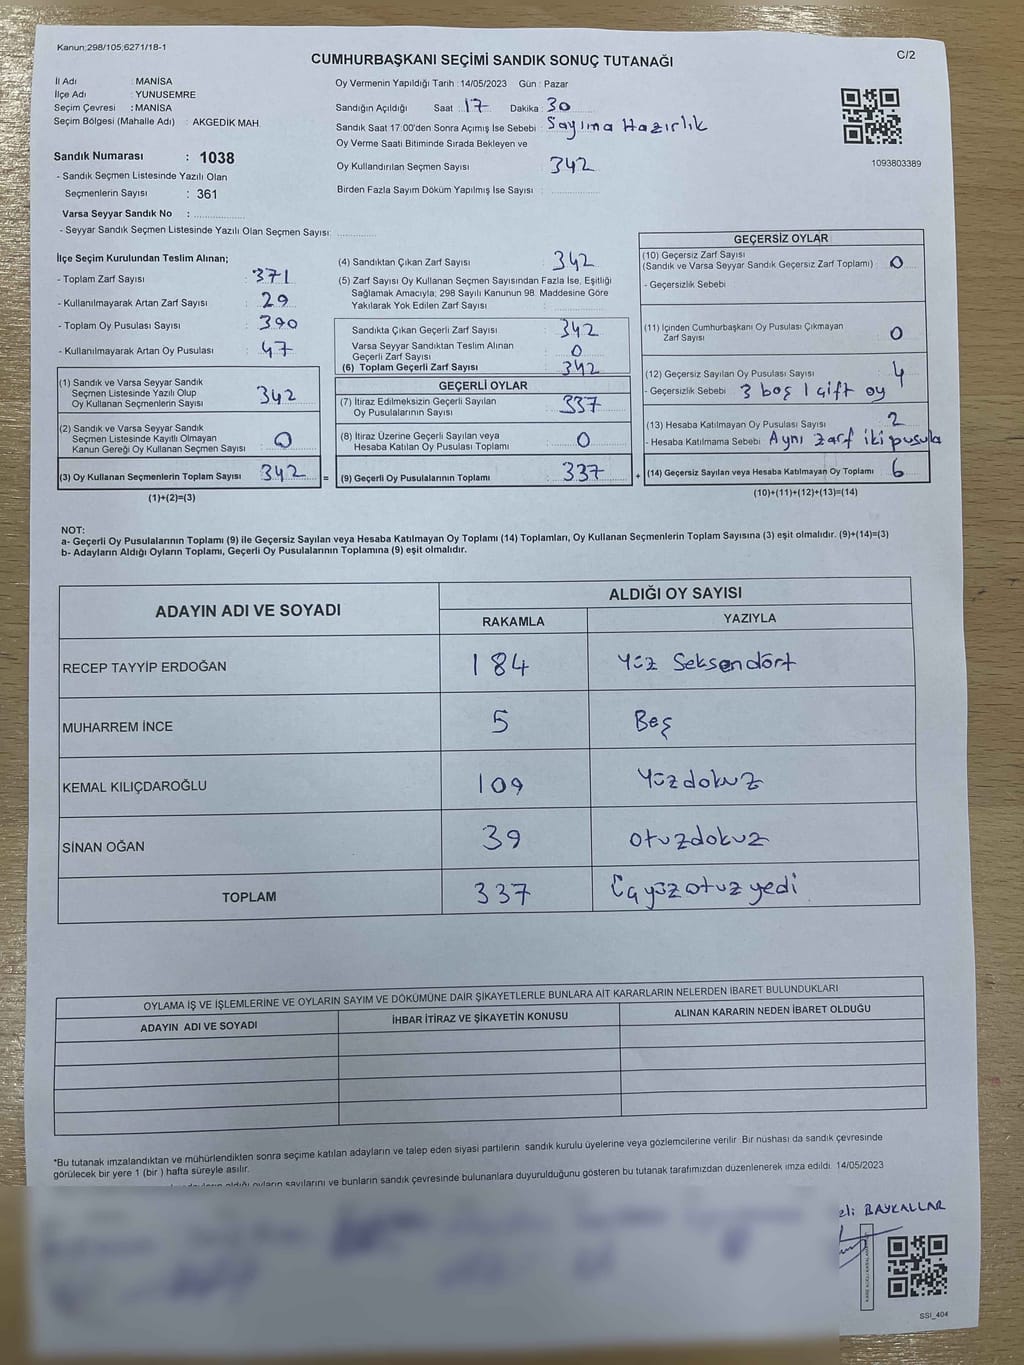 Kanun;298/105;6271/18-1
C/2
CUMHURBAŞKANI SEÇİMİ SANDIK SONUÇ TUTANAĞI
İl Adı : MANİSA
İlçe Adı : YUNUSEMRE
Seçim Çevresi : MANİSA
Seçim Bölgesi (Mahalle Adı) : AKGEDİK MAH.
Oy Vermenin Yapıldığı Tarih : 14/05/2023 Gün : Pazar
Sandığın Açıldığı Saat : 17 Dakika : 30
Sandık Saat 17:00'den Sonra Açımış İse Sebebi : Sayıma Hazırlık
Oy Verme Saati Bitiminde Sırada Bekleyen ve
Oy Kullandırılan Seçmen Sayısı : 342
Birden Fazla Sayım Döküm Yapılmış İse Sayısı :
1093803389
Sandık Numarası : 1038
- Sandık Seçmen Listesinde Yazılı Olan
Seçmenlerin Sayısı : 361
Varsa Seyyar Sandık No :
- Seyyar Sandık Seçmen Listesinde Yazılı Olan Seçmen Sayısı:
İlçe Seçim Kurulundan Teslim Alınan;
- Toplam Zarf Sayısı : 371
- Kullanılmayarak Artan Zarf Sayısı : 29
- Toplam Oy Pusulası Sayısı : 390
- Kullanılmayarak Artan Oy Pusulası : 47
(1) Sandık ve Varsa Seyyar Sandık
Seçmen Listesinde Yazılı Olup
Oy Kullanan Seçmenlerin Sayısı : 342
(2) Sandık ve Varsa Seyyar Sandık
Seçmen Listesinde Kayıtlı Olmayan
Kanun Gereği Oy Kullanan Seçmen Sayısı : 0
(3) Oy Kullanan Seçmenlerin Toplam Sayısı : 342 =
(1)+(2)=(3)
(4) Sandıktan Çıkan Zarf Sayısı : 342
(5) Zarf Sayısı Oy Kullanan Seçmen Sayısından Fazla İse, Eşitliği
Sağlamak Amacıyla; 298 Sayılı Kanunun 98. Maddesine Göre
Yakılarak Yok Edilen Zarf Sayısı :
Sandıkta Çıkan Geçerli Zarf Sayısı : 342
Varsa Seyyar Sandıktan Teslim Alınan
Geçerli Zarf Sayısı : 0
(6) Toplam Geçerli Zarf Sayısı : 342
GEÇERLİ OYLAR
(7) İtiraz Edilmeksizin Geçerli Sayılan
Oy Pusulalarının Sayısı : 337
(8) İtiraz Üzerine Geçerli Sayılan veya
Hesaba Katılan Oy Pusulası Toplamı : 0
(9) Geçerli Oy Pusulalarının Toplamı : 337 +
GEÇERSİZ OYLAR
(10) Geçersiz Zarf Sayısı
(Sandık ve Varsa Seyyar Sandık Geçersiz Zarf Toplamı) : 0
- Geçersizlik Sebebi
(11) İçinden Cumhurbaşkanı Oy Pusulası Çıkmayan
Zarf Sayısı : 0
(12) Geçersiz Sayılan Oy Pusulası Sayısı : 4
- Geçersizlik Sebebi 3 boş 1 çift oy
(13) Hesaba Katılmayan Oy Pusulası Sayısı : 2
- Hesaba Katılmama Sebebi Aynı zarf iki pusula
(14) Geçersiz Sayılan veya Hesaba Katılmayan Oy Toplamı : 6
(10)+(11)+(12)+(13)=(14)
NOT:
a- Geçerli Oy Pusulalarının Toplamı (9) ile Geçersiz Sayılan veya Hesaba Katılmayan Oy Toplamı (14) Toplamları, Oy Kullanan Seçmenlerin Toplam Sayısına (3) eşit olmalıdır. (9)+(14)=(3)
b- Adayların Aldığı Oyların Toplamı, Geçerli Oy Pusulalarının Toplamına (9) eşit olmalıdır.
ADAYIN ADI VE SOYADI
ALDIĞI OY SAYISI
RAKAMLA YAZIYLA
RECEP TAYYİP ERDOĞAN 184 Yüz Seksendört
MUHARREM İNCE 5 Beş
KEMAL KILIÇDAROĞLU 109 Yüzdokuz
SİNAN OĞAN 39 otuzdokuz
TOPLAM 337 Üçyüzotuzyedi
OYLAMA İŞ VE İŞLEMLERİNE VE OYLARIN SAYIM VE DÖKÜMÜNE DAİR ŞİKAYETLERLE BUNLARA AİT KARARLARIN NELERDEN İBARET BULUNDUKLARI
ADAYIN ADI VE SOYADI İHBAR İTİRAZ VE ŞİKAYETİN KONUSU ALINAN KARARIN NEDEN İBARET OLDUĞU
*Bu tutanak imzalandıktan ve mühürlendikten sonra seçime katılan adayların ve talep eden siyasi partilerin sandık kurulu üyelerine veya gözlemcilerine verilir. Bir nüshası da sandık çevresinde
görülecek bir yere 1 (bir ) hafta süreyle asılır.
aldığı oyların sayılarını ve bunların sandık çevresinde bulunanlara duyurulduğunu gösteren bu tutanak tarafımızdan düzenlenerek imza edildi. 14/05/2023
BAYKALLAR
SSI_404